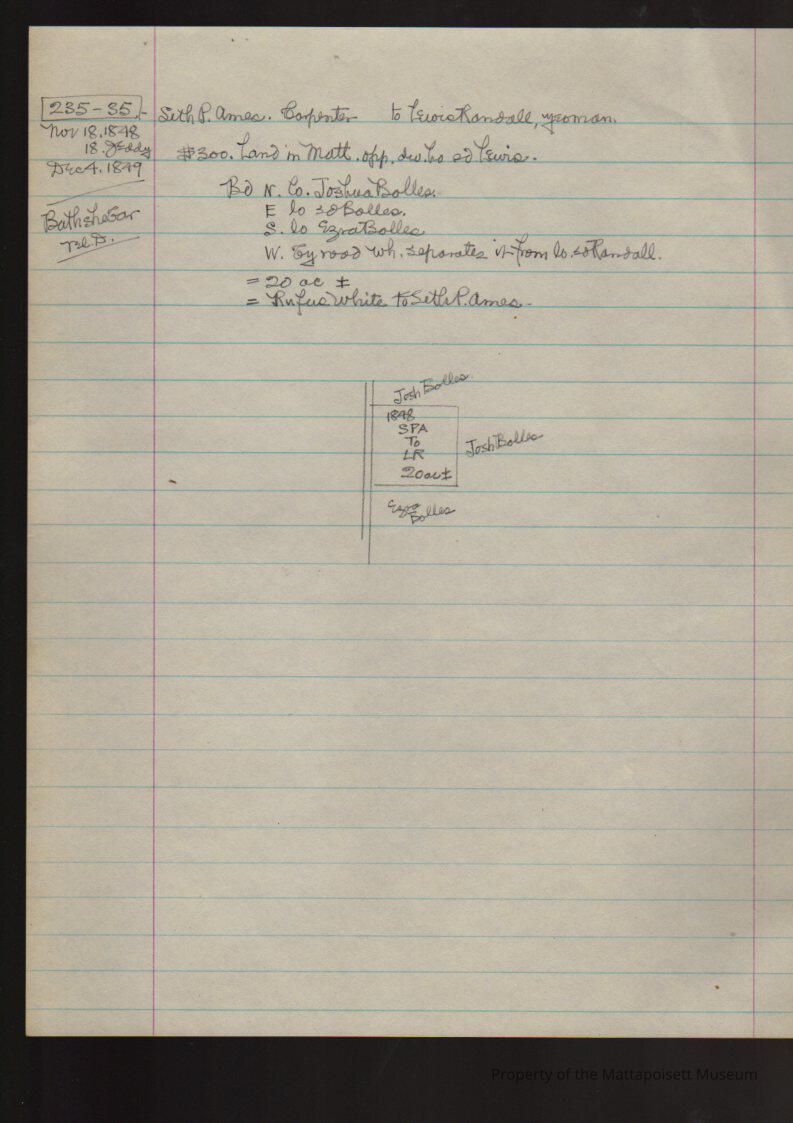 235-35
Nov 18, 1848
18. Jeddy
Dec 4. 1849
Bathsheba r
rel. D.
Seth P. Ames. Carpenter to Lewis Randall, yeoman.
$300. Land in Matt. opp. dw. ho sd Lewis.
Bd N. lo. Joshua Bolles.
E lo sd Bolles.
S. lo Ezra Bolles
W. by road wh. separates it from lo. sd Randall.
= 20 ac ±
= Rufus White to Seth P. Ames.
Josh Bolles.
1848
SPA
To
LR
20 ac ±
Josh Bolles
Ezra
Bolles
Property of the Mattapoisett Museum